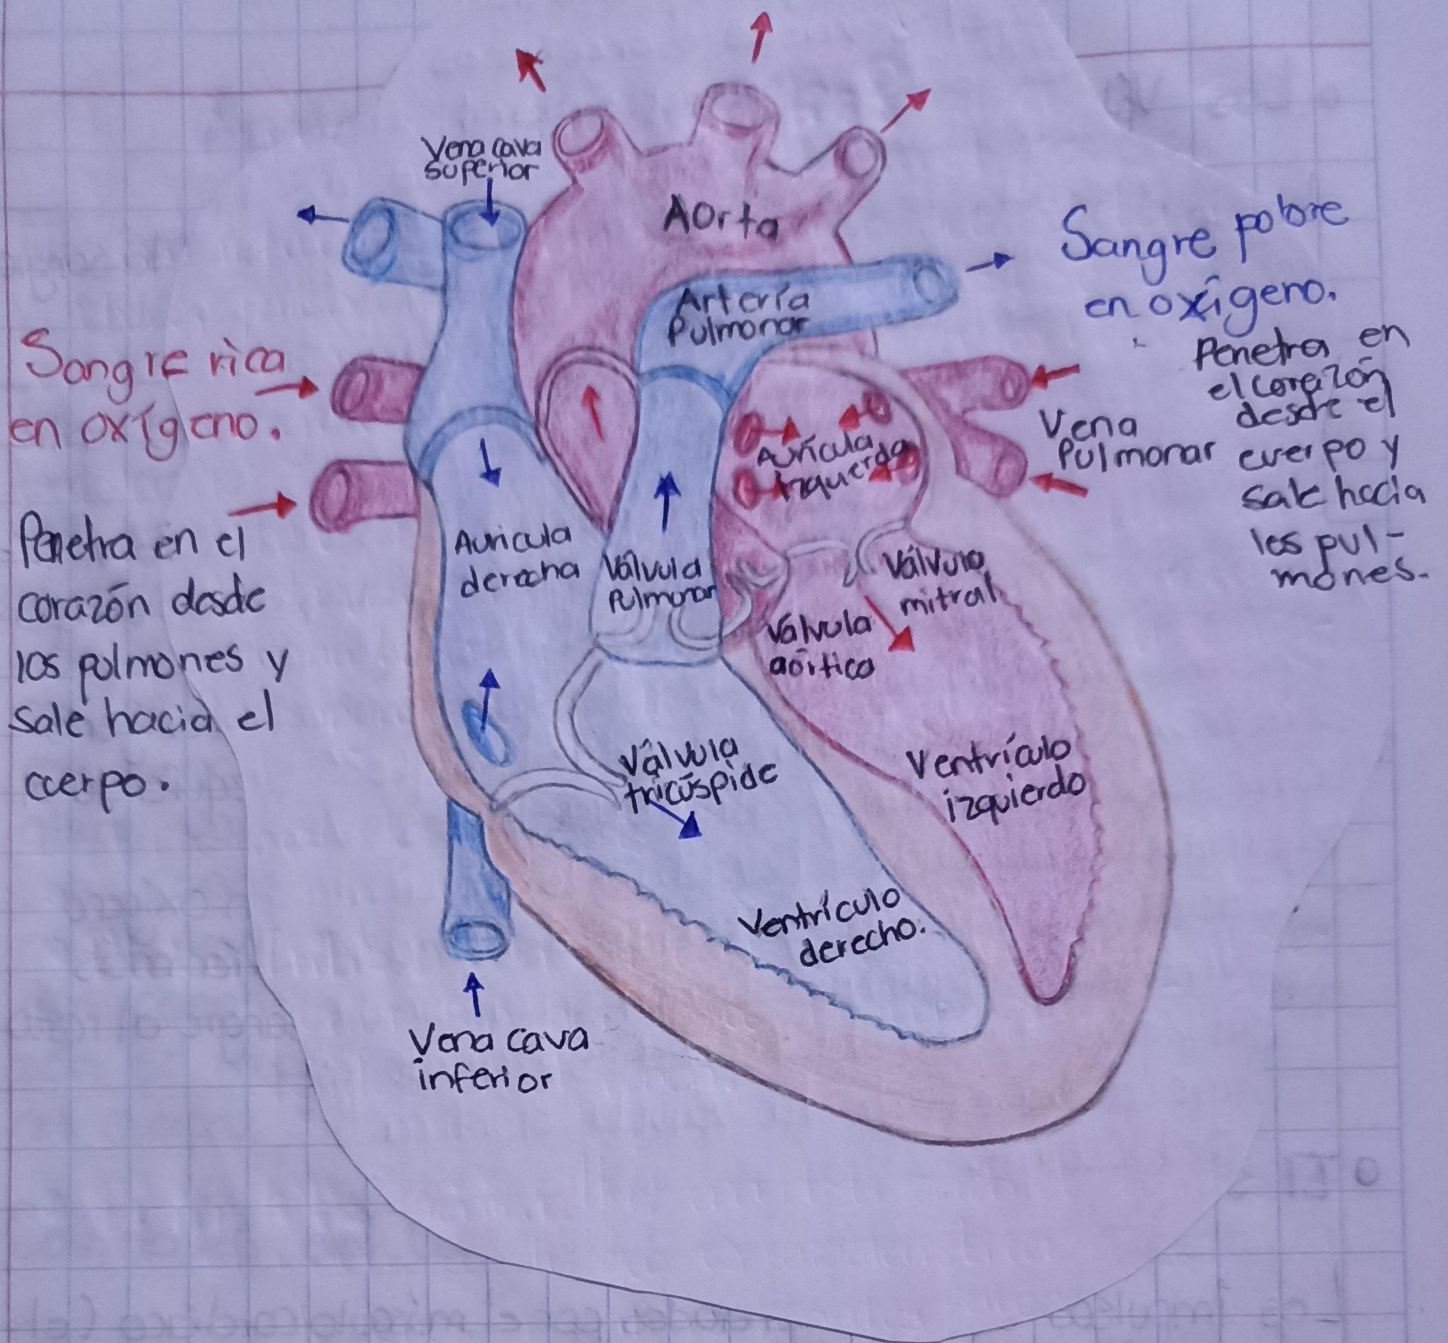 Vena cava
superior
Aorta
Arteria
Pulmonar
Sangre pobre
en oxígeno.
Penetra en
el corazón
desde el
cuerpo y
sale hacia
los pul-
mones.
Sangre rica
en oxígeno.
Penetra en el
corazón desde
los pulmones y
sale hacia el
cuerpo.
Vena
Pulmonar
Aurícula
izquierda
Auricula
derecha
Válvula
Pulmonar
Válvula
mitral
Válvula
aórtica
Válvula
tricúspide
Ventrículo
izquierdo
Ventrículo
derecho.
Vena cava
inferior